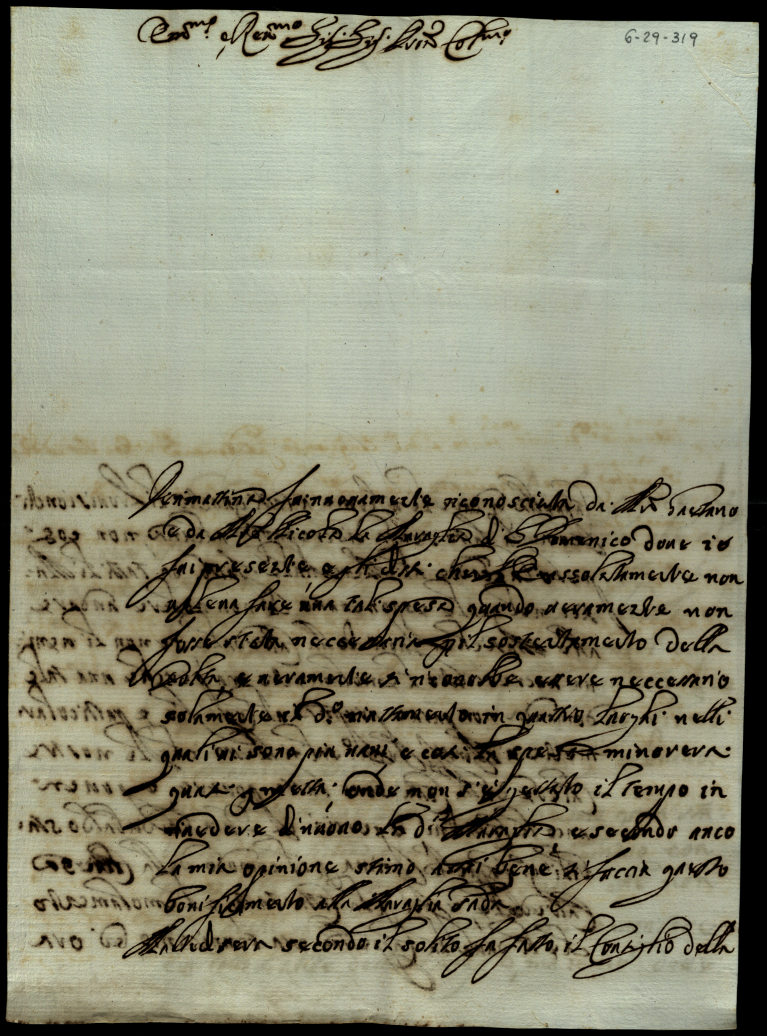 Em.mo e Rev.mo Sig. Sig. P.rone Col.mo
6-29-319
fu nuovamente riconosciuta da M.ro Gaetano
e da M.ro Nicola la Muraglia di S. Domenico dove io
fui presente e gli dissi che assolutamente non
fare una tal spesa quando veramente non
fosse stata neccessaria p il sostentamento della
e veramente si riconobbe essere neccessario
solamente il d.o in quattro luoghi nelli
quali vi sono più vani e così la spesa minorerà
onde non s'è gettato il tempo in
vedere di nuovo la d.a Muraglia e secondo anco
la mia opinione stimo assai bene si faccia questo
bonificamento alla Muraglia sud.a
secondo il solito fu fatto il Consiglio della